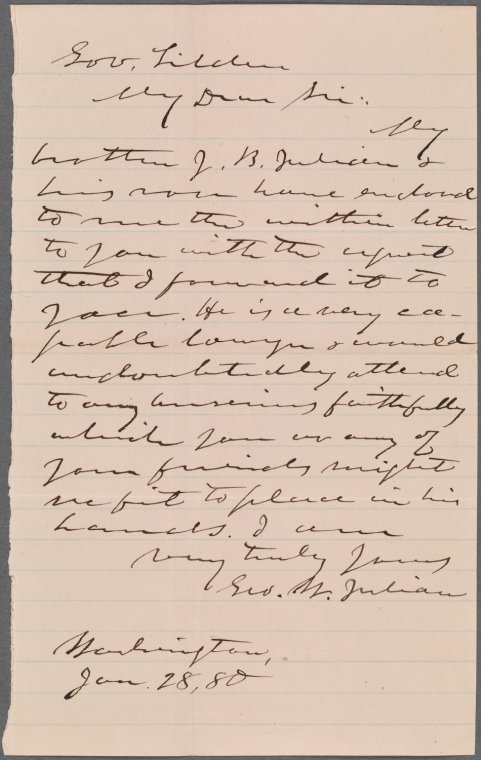 Gov. Tilden
My Dear Sir:
My
brother J. B. Julian &
his son have enclosed
to me the within letter
to you with the request
that I forward it to
you. He is a very ca-
pable lawyer & would
undoubtedly attend
to any business faithfully
which you or any of
your friends might
see fit to place in his
hands. I am
very truly yours
Geo. W. Julian
Washington,
Jan. 28, 80